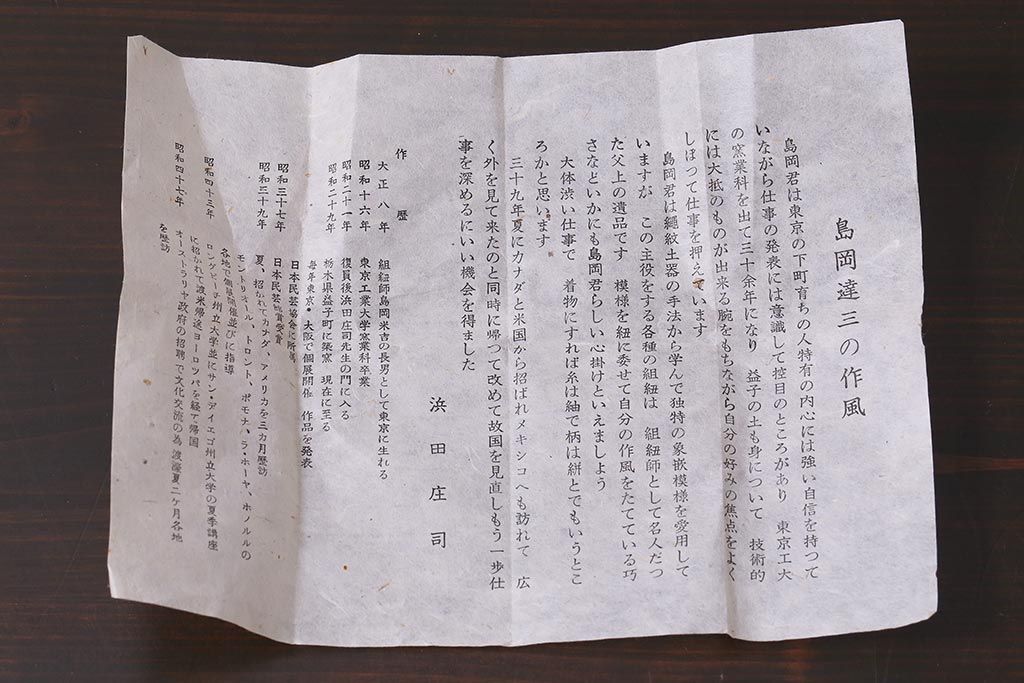 島岡達三の作風
島岡君は東京の下町育ちの人特有の内心には強い自信を持つて
いながら仕事の発表には意識して控目のところがあり 東京工大
の窯業科を出て三十余年になり 益子の土も身について 技術的
には大抵のものが出来る腕をもちながら自分の好みの焦点をよく
しぼつて仕事を押えています
島岡君は繩紋土器の手法から学んで独特の象嵌模様を愛用して
いますが この主役をする各種の組紐は 組紐師として名人だつ
た父上の遺品です 模様を紐に委せて自分の作風をたてている巧
さなどいかにも島岡君らしい心掛けといえましよう
大体渋い仕事で 着物にすれば糸は紬で柄は絣とでもいうとこ
ろかと思います
三十九年夏にカナダと米国から招ばれメキシコへも訪れて 広
く外を見て来たのと同時に帰つて改めて故国を見直しもう一歩仕
事を深めるにいい機会を得ました
浜田庄司
作歴
大正八年 組紐師島岡米吉の長男として東京に生れる
昭和十六年 東京工業大学窯業科卒業
昭和二十一年 復員後浜田庄司先生の門に入る
昭和二十九年 栃木県益子町に築窯 現在に至る
毎年東京・大阪で個展開催 作品を発表
日本民芸協会に所属
昭和三十七年 日本民芸館賞受賞
昭和三十九年 夏、招かれてカナダ、アメリカを三カ月歴訪
モントリオール、トロント、ポモナ、ラ・ホーヤ、ホノルルの
各地で個展開催並びに指導
昭和四十三年 ロングビーチ州立大学並にサン・デイエゴ州立大学の夏季講座
に招かれて渡米帰途ヨーロツパを経て帰国
昭和四十七年 オーストラリヤ政府の招聘で文化交流の為渡濠夏二ケ月各地
を歴訪